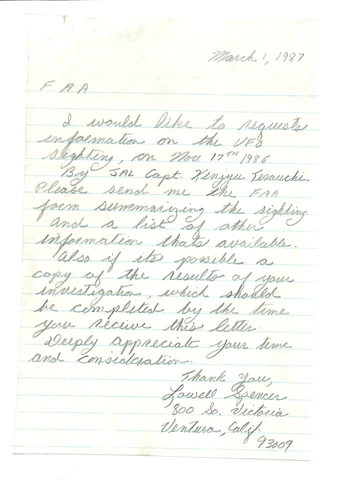 March 1, 1987
FAA
I would like to requests
information on the UFO
sighting, on Nov 17TH 1986
By JAL Capt. Kenjyu Terauchi.
Please send me the FAA
form summarizing the sighting
and a list of other
information thats available.
Also if its possible a
copy of the results of your
investigation, which should
be completed by the time
you receive this letter.
Deeply appreciate your time
and consideration.
Thank You,
Lowell Spencer
800 So. Victoria
Ventura, Calif.
93009